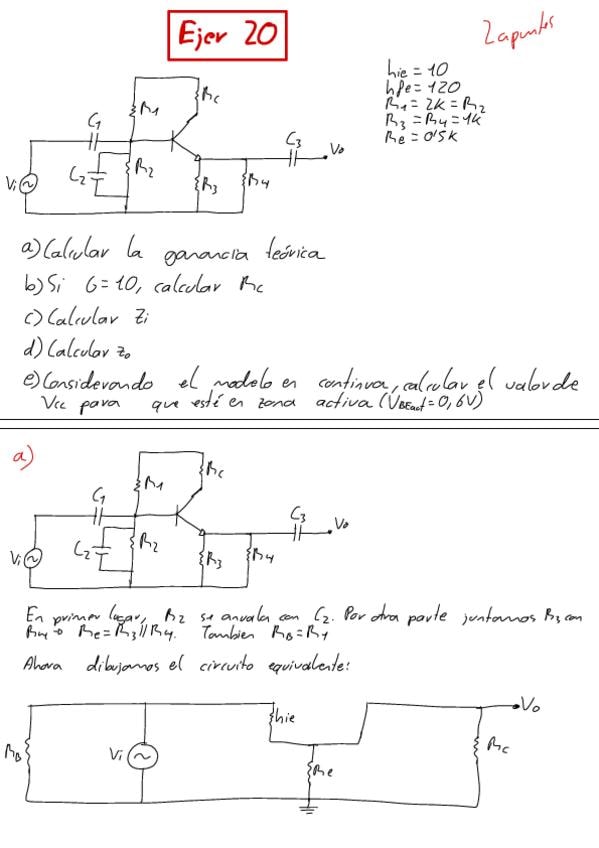 Ejer 20
2 apuntes
hie = 10
hfe = 120
R1 = 2k = R2
R3 = R4 = 1k
Re = 0'5k
R1
Rc
C1
C3
Vo
C2
R2
Vi
R3
R4
a) Calcular la ganancia teórica
b) Si G = 10, calcular Rc
c) Calcular Zi
d) Calcular zo
e) Considerando el modelo en continua, calcular el valor de
Vcc para que esté en zona activa (VBEact = 0,6V)
a)
R1
Rc
C1
C3
Vo
C2
R2
Vi
R3
R4
En primer lugar, R2 se anula con C2. Por otra parte juntamos R3 con
R4 → Re = R3 // R4. Tambien RB = R1
Ahora dibujamos el circuito equivalente:
Vo
hie
RB
Vi
Re
Rc